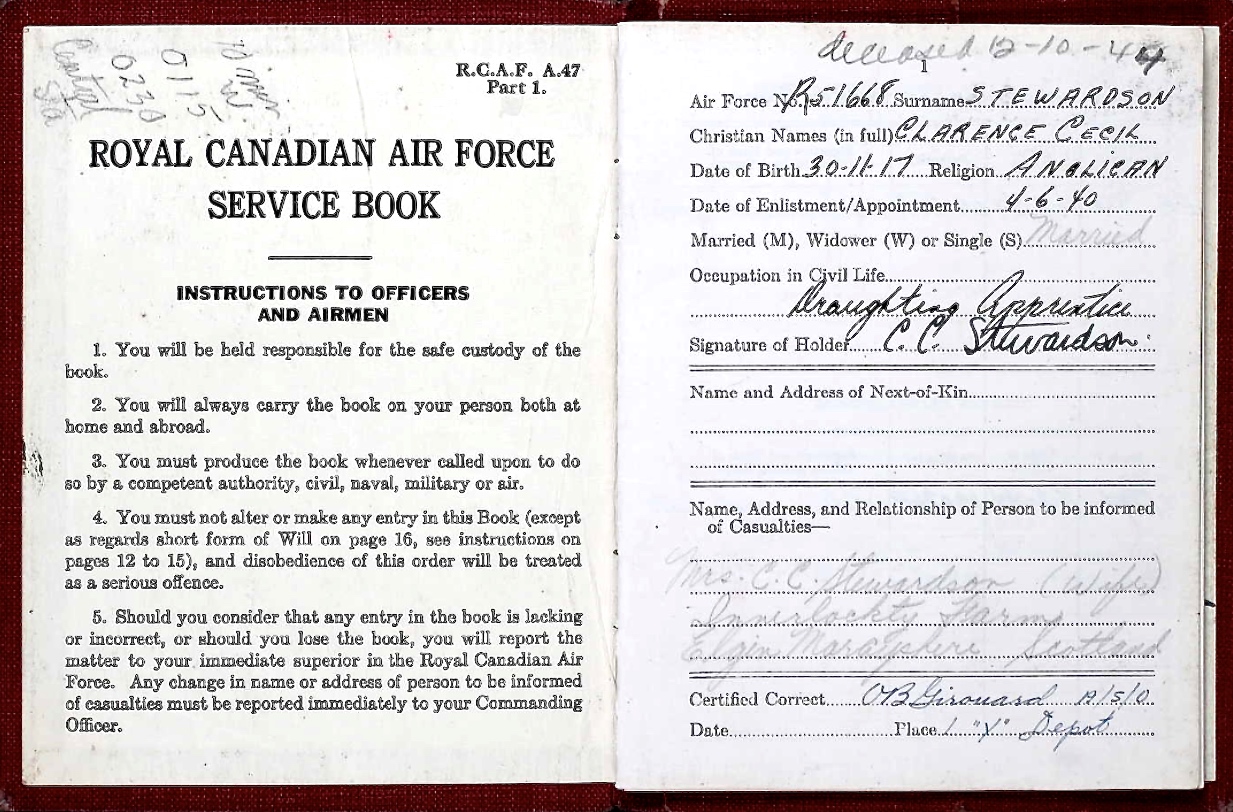 0115
0230
Central
Sta
R.C.A.F. A.47
Part 1.
ROYAL CANADIAN AIR FORCE
SERVICE BOOK
INSTRUCTIONS TO OFFICERS
AND AIRMEN
1. You will be held responsible for the safe custody of the
book.
2. You will always carry the book on your person both at
home and abroad.
3. You must produce the book whenever called upon to do
so by a competent authority, civil, naval, military or air.
4. You must not alter or make any entry in this Book (except
as regards short form of Will on page 16, see instructions on
pages 12 to 15), and disobedience of this order will be treated
as a serious offence.
5. Should you consider that any entry in the book is lacking
or incorrect, or should you lose the book, you will report the
matter to your immediate superior in the Royal Canadian Air
Force. Any change in name or address of person to be informed
of casualties must be reported immediately to your Commanding
Officer.
deceased 12-10-44
1
Air Force No. R51668 Surname STEWARDSON
Christian Names (in full) CLARENCE CECIL
Date of Birth 30-11-17 Religion ANGLICAN
Date of Enlistment/Appointment 4-6-40
Married (M), Widower (W) or Single (S) Married
Occupation in Civil Life
Draughting Apprentice
Signature of Holder C. C. Stewardson
Name and Address of Next-of-Kin
Name, Address, and Relationship of Person to be informed
of Casualties—
Mrs. C. C. Stewardson (Wife)
Farm
Elgin Scotland
Certified Correct OB Girouard
Date Place 1 "Y" Depot